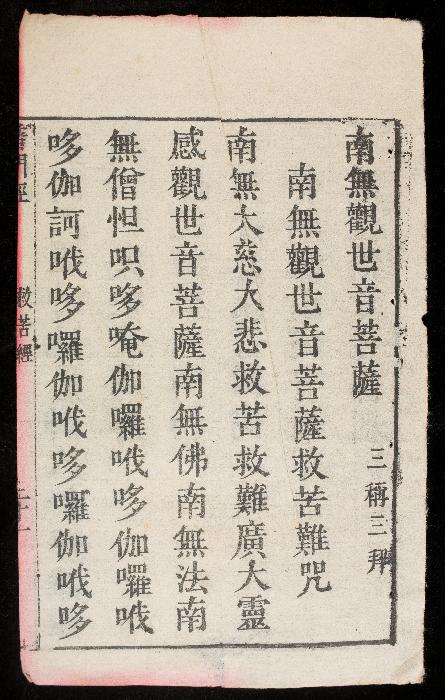 南無觀世音菩薩 三稱三拜
南無觀世音菩薩救苦難咒
南無大慈大悲救苦救難廣大靈
感觀世音菩薩南無佛南無法南
無僧怛呮哆唵伽囉哦哆伽囉哦
哆伽訶哦哆囉伽哦哆囉伽哦哆
普門經 救苦經